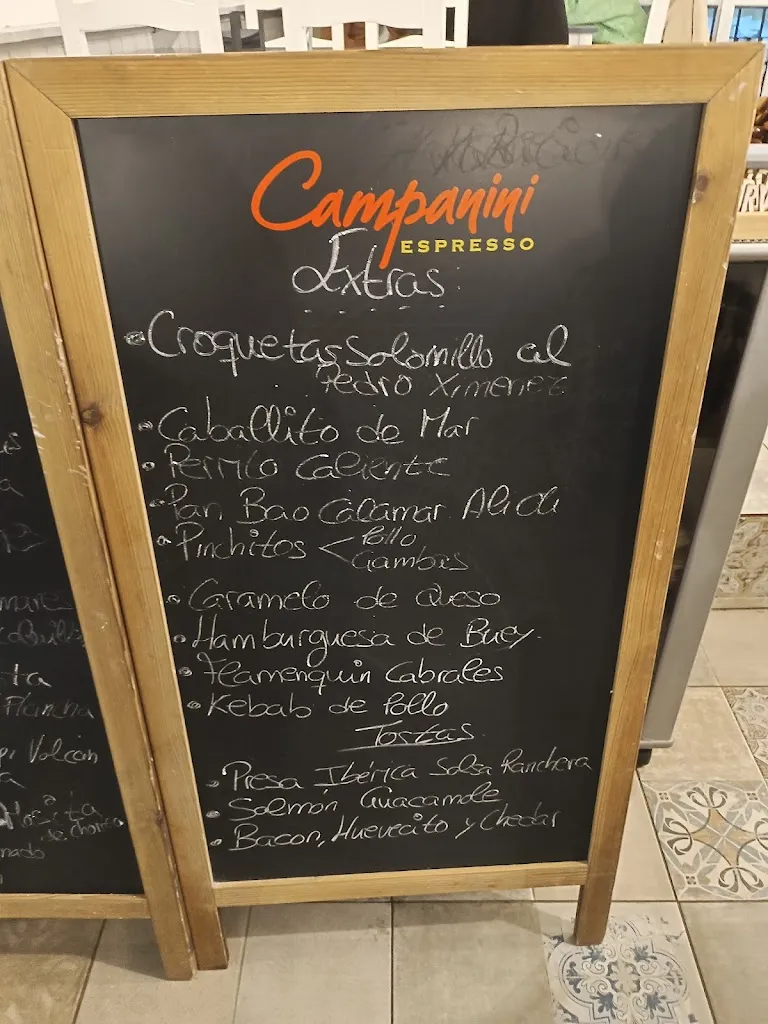 Campanini
ESPRESSO
Extras
• Croquetas Solomillo al
Pedro Ximenez
• Caballito de Mar
• Perrito Caliente
• Pan Bao Calamar Ali oli
• Pinchitos < Pollo
Gambas
• Caramelo de Queso
• Hamburguesa de Buey.
• Flamenquin Cabrales
• Kebab de Pollo
Tostas
• Presa Ibérica Salsa Ranchera
• Salmón Guacamole
• Bacon, Huevecito y Chedar
Plancha
Volcan
de Chorizo